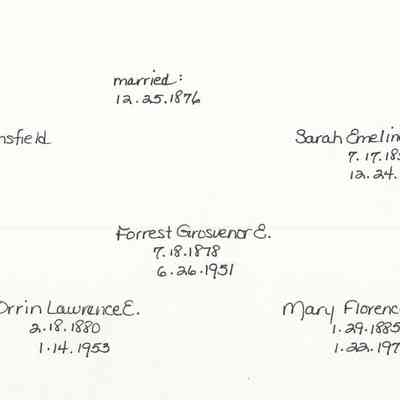 married:
12.25.1876
nsfield
Sarah Emelin
7.17.18
12.24.
Forrest Grosvenor E.
7.18.1878
6.26.1951
Orrin Lawrence E.
2.18.1880
1.14.1953
Mary Florenc
1.29.1885
1.22.197